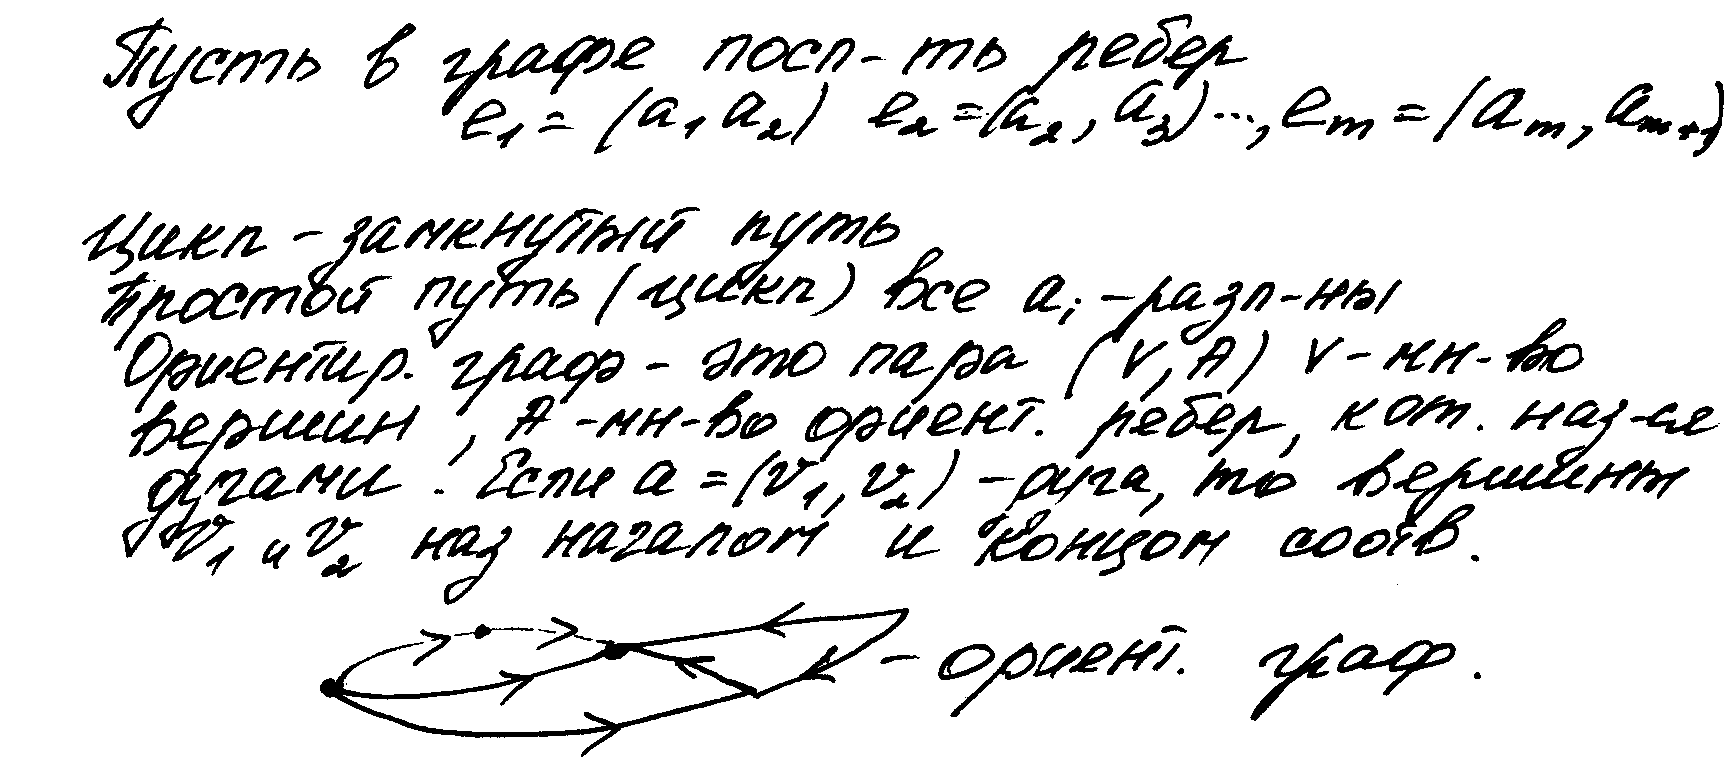 Пусть в графе посл-ть ребер
e₁ = (a₁ a₂) e₂ = (a₂, a₃) ..., eₘ = (aₘ, aₘ₊₁)
Цикл - замкнутый путь
Простой путь (цикл) все aᵢ - разл-ны
Ориентир. граф - это пара (V, A) V - мн-во
вершин, A - мн-во ориент. ребер, кот. наз-ся
дугами. Если a = (v₁, v₂) - дуга, то вершины
v₁ и v₂ наз началом и концом соотв.
- ориент. граф.